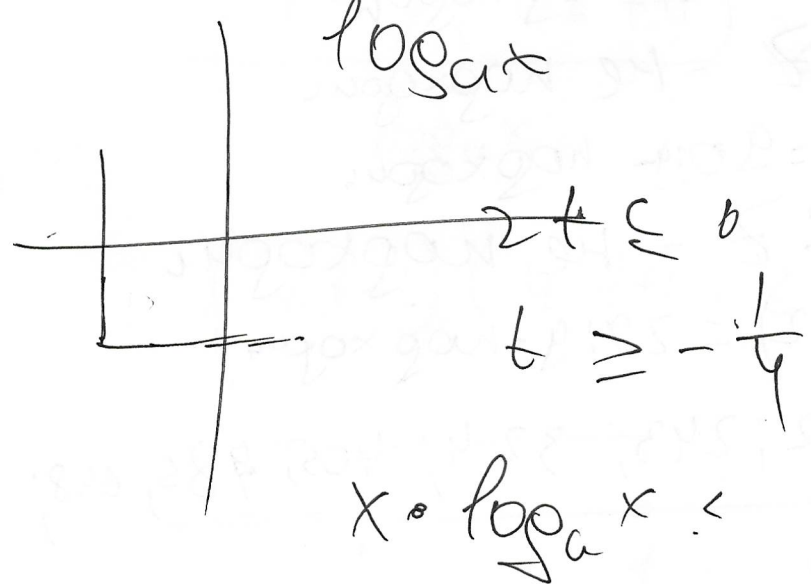 logₐx
2t ≤ 0
t ≥ -1/4
x · logₐ x <